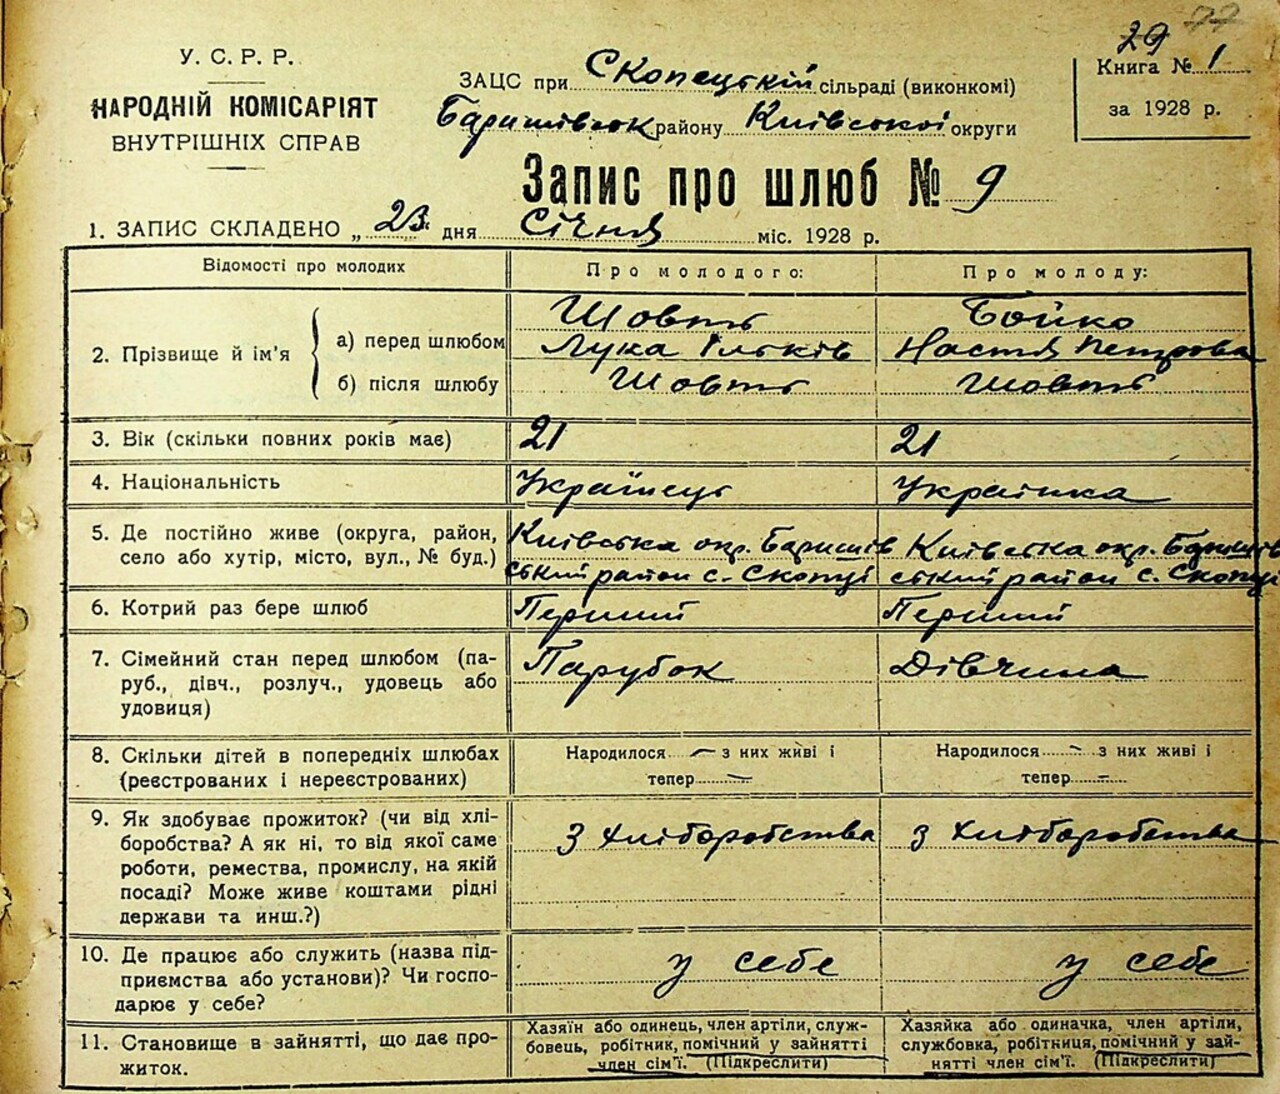 29 77
У. С. Р. Р.
НАРОДНІЙ КОМІСАРІЯТ
ВНУТРІШНІХ СПРАВ
ЗАЦС при Скопецькій сільраді (виконкомі)
Баришівськ району Київської округи
Книга № 1
за 1928 р.
Запис про шлюб № 9
1. ЗАПИС СКЛАДЕНО „ 23 дня Січня міс. 1928 р.
Відомості про молодих
Про молодого:
Про молоду:
2. Прізвище й ім'я
а) перед шлюбом
Шовть
Лука Ільків
Бойко
Настя Петрова
б) після шлюбу
Шовть
Шовть
3. Вік (скільки повних років має)
21
21
4. Національність
Українець
Українка
5. Де постійно живе (округа, район,
село або хутір, місто, вул., № буд.)
Київська окр. Баришів
ський район с. Скопці
Київська окр. Баришів
ський район с. Скопці
6. Котрий раз бере шлюб
Перший
Перший
7. Сімейний стан перед шлюбом (па-
руб., дівч., розлуч., удовець або
удовиця)
Парубок
Дівчина
8. Скільки дітей в попередніх шлюбах
(реєстрованих і нереєстрованих)
Народилося — з них живі і
тепер —
Народилося — з них живі і
тепер —
9. Як здобуває прожиток? (чи від хлі-
боробства? А як ні, то від якої саме
роботи, ремества, промислу, на якій
посаді? Може живе коштами рідні
держави та инш.?)
З хліборобства
З хліборобства
10. Де працює або служить (назва під-
приємства або установи)? Чи госпо-
дарює у себе?
у себе
у себе
11. Становище в зайнятті, що дає про-
житок.
Хазяїн або одинець, член артіли, служ-
бовець, робітник, помічний у зайнятті
член сім'ї. (Підкреслити)
Хазяйка або одиначка, член артіли,
службовка, робітниця, помічний у зай-
нятті член сім'ї. (Підкреслити)